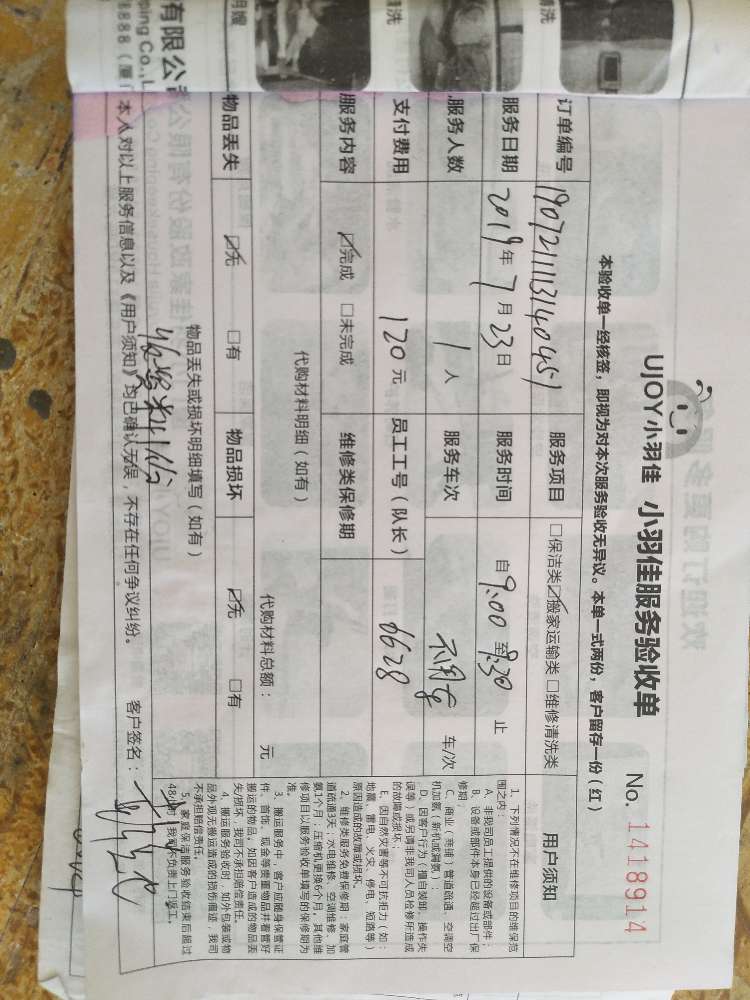 UJOY小羽佳 小羽佳服务验收单
No. 1418914
本验收单一经核签，即视为对本次服务验收无异议。本单一式两份，客户留存一份（红）
订单编号 190721113140451 服务项目 □保洁类☑搬家运输类□维修清洗类
服务日期 2019年7月23日 服务时间 自9:00至9:30止
服务人数 1人 服务车次 不用车 车/次
支付费用 120元 员工工号（队长） 0628
服务内容 ☑完成 □未完成 维修类保修期
代购材料明细（如有）
代购材料总额： 元
物品丢失 ☑无 □有 物品损坏 ☑无 □有
物品丢失或损坏明细填写（如有）
本人对以上服务信息以及《用户须知》均已确认无误，不存在任何争议纠纷。 客户签名：
用户须知
1、下列情况不在维修项目的维保范
围之内：
A、非我司员工提供的设备或部件；
B、设备或部件本身已经超过出厂保
修期；
C、商业（商铺）管道疏通、空调空
机加氨（新机或漏氨）；
D、因客户行为（擅自装卸、操作失
误等）或另请非我司人员检修所造成
的故障或损坏；
E、因自然灾害等不可抗拒力（如：
地震、雷电、火灾、停电、短路等）
原因造成的故障或损坏。
2、维修类服务免费保修期：家庭管
道疏通3天；水电维修、空调维修、加
氨1个月；压缩机更换6个月，其他维
修项目以服务验收单填写的保修期为
准。
3、搬运服务中，客户应随身保管证
件、首饰、现金等贵重物品并看管好
搬运的物品，如因客户造成的物品丢
失/损坏，我司不承担赔偿责任。
4、搬运服务验收时，如外包装或物
品外观无搬运造成的损伤痕迹，我司
不承担赔偿责任。
5、家庭保洁服务验收结束后超过
48小时，我司不负责上门返工。
有限公司
ping Co.,L
8888（厦门
清洗
清洗